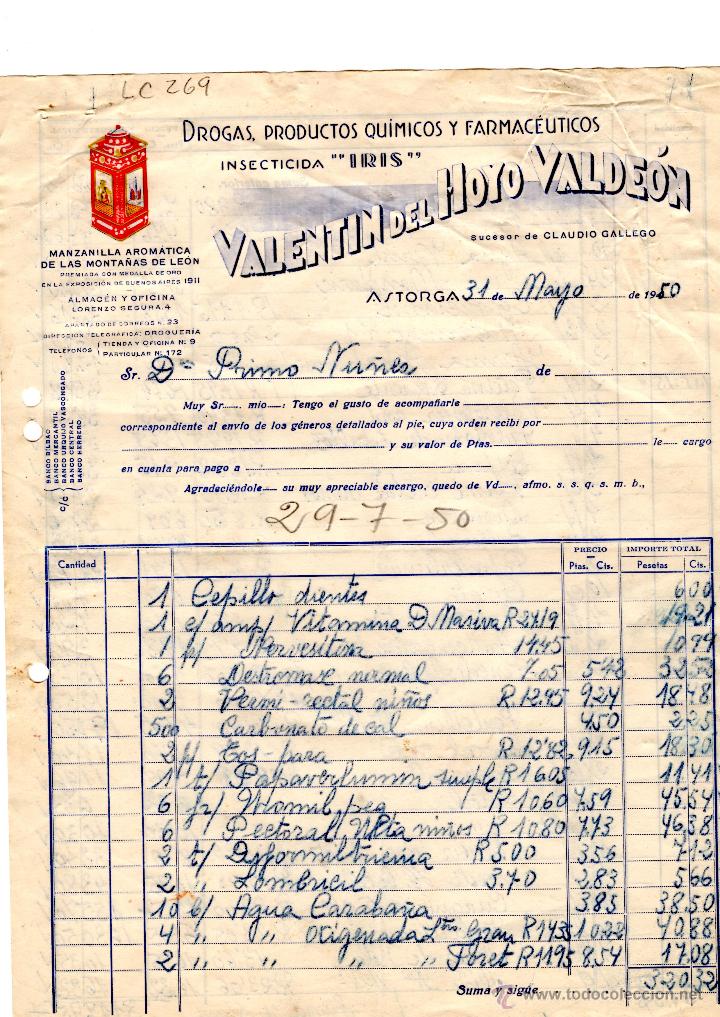 LC 269
DROGAS, PRODUCTOS QUÍMICOS Y FARMACÉUTICOS
INSECTICIDA ""IRIS"
VALENTIN DEL HOYO VALDEÓN
sucesor de CLAUDIO GALLEGO
MANZANILLA AROMÁTICA
DE LAS MONTAÑAS DE LEÓN
PREMIADA CON MEDALLA DE ORO
EN LA EXPOSICIÓN DE BUENOS AIRES 1911
ALMACÉN Y OFICINA
LORENZO SEGURA, 4
APARTADO DE CORREOS N. 23
DIRECCIÓN TELEGRÁFICA: DROGUERÍA
TELÉFONOS { TIENDA Y OFICINA N.º 9
PARTICULAR N.º 172
ASTORGA 31 de Mayo de 1950
Sr. Dn Primo Nuñez de
Muy Sr. mío: Tengo el gusto de acompañarle
correspondiente al envío de los géneros detallados al pie, cuya orden recibí por
y su valor de Ptas. le cargo
en cuenta para pago a
Agradeciéndole su muy apreciable encargo, quedo de Vd., afmo. s. s. q. s. m. b.,
c/c
BANCO BILBAO
BANCO MERCANTIL
BANCO URQUIJO VASCONGADO
BANCO CENTRAL
BANCO HERRERO
29-7-50
Cantidad PRECIO IMPORTE TOTAL
Ptas. Cts. Pesetas Cts.
1 Cepillo dientes 6.00
1 c/ amp/ Vitamina D Masiva R 2719 19.21
1 f/ 14.45 10.99
6 normal 7.05 5.42 32.52
2 Vermi-rectal niños R. 12.95 9.24 18.48
500 Carbonato de cal 4.50 2.25
2 f/ Tos-para R. 12'82 9.15 18.30
1 t/ simple R 16.05 11.41
6 R 10.60 7.59 45.54
6 Pectoral niños R 10.80 7.73 46.38
2 t/ R 5.00 3.56 7.12
2 " Lombricil 3.70 2.83 5.66
10 b/ Agua Carabaña 3.85 38.50
4 " " oxigenada Gran R 14.35 10.22 40.88
2 " " " Foret R 11.95 8.54 17.08
320.32
Suma y sigue
www.todocoleccion.net